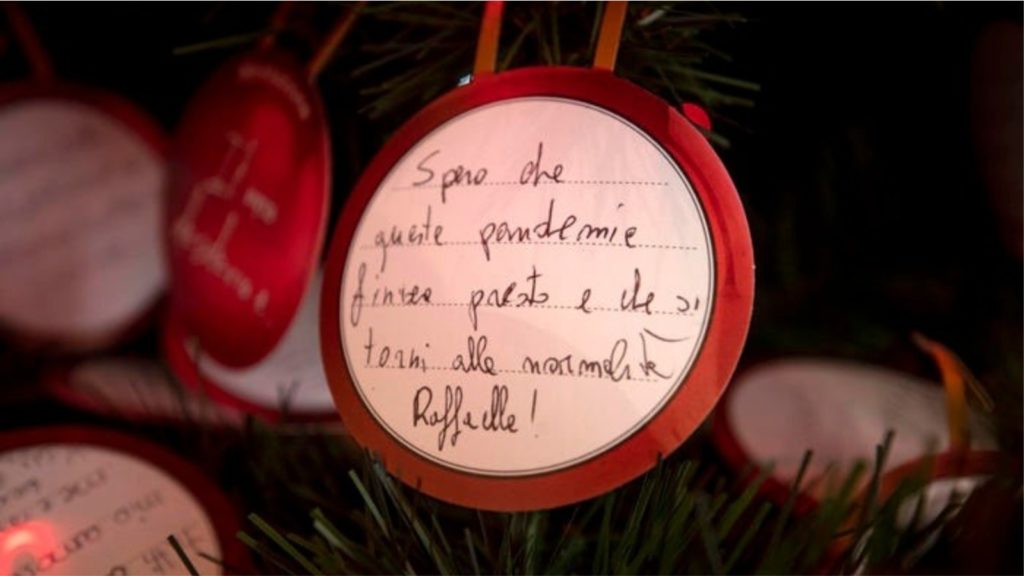 Spero che
questa pandemia
finisca presto e che si
torni alla normalità
Raffaella!